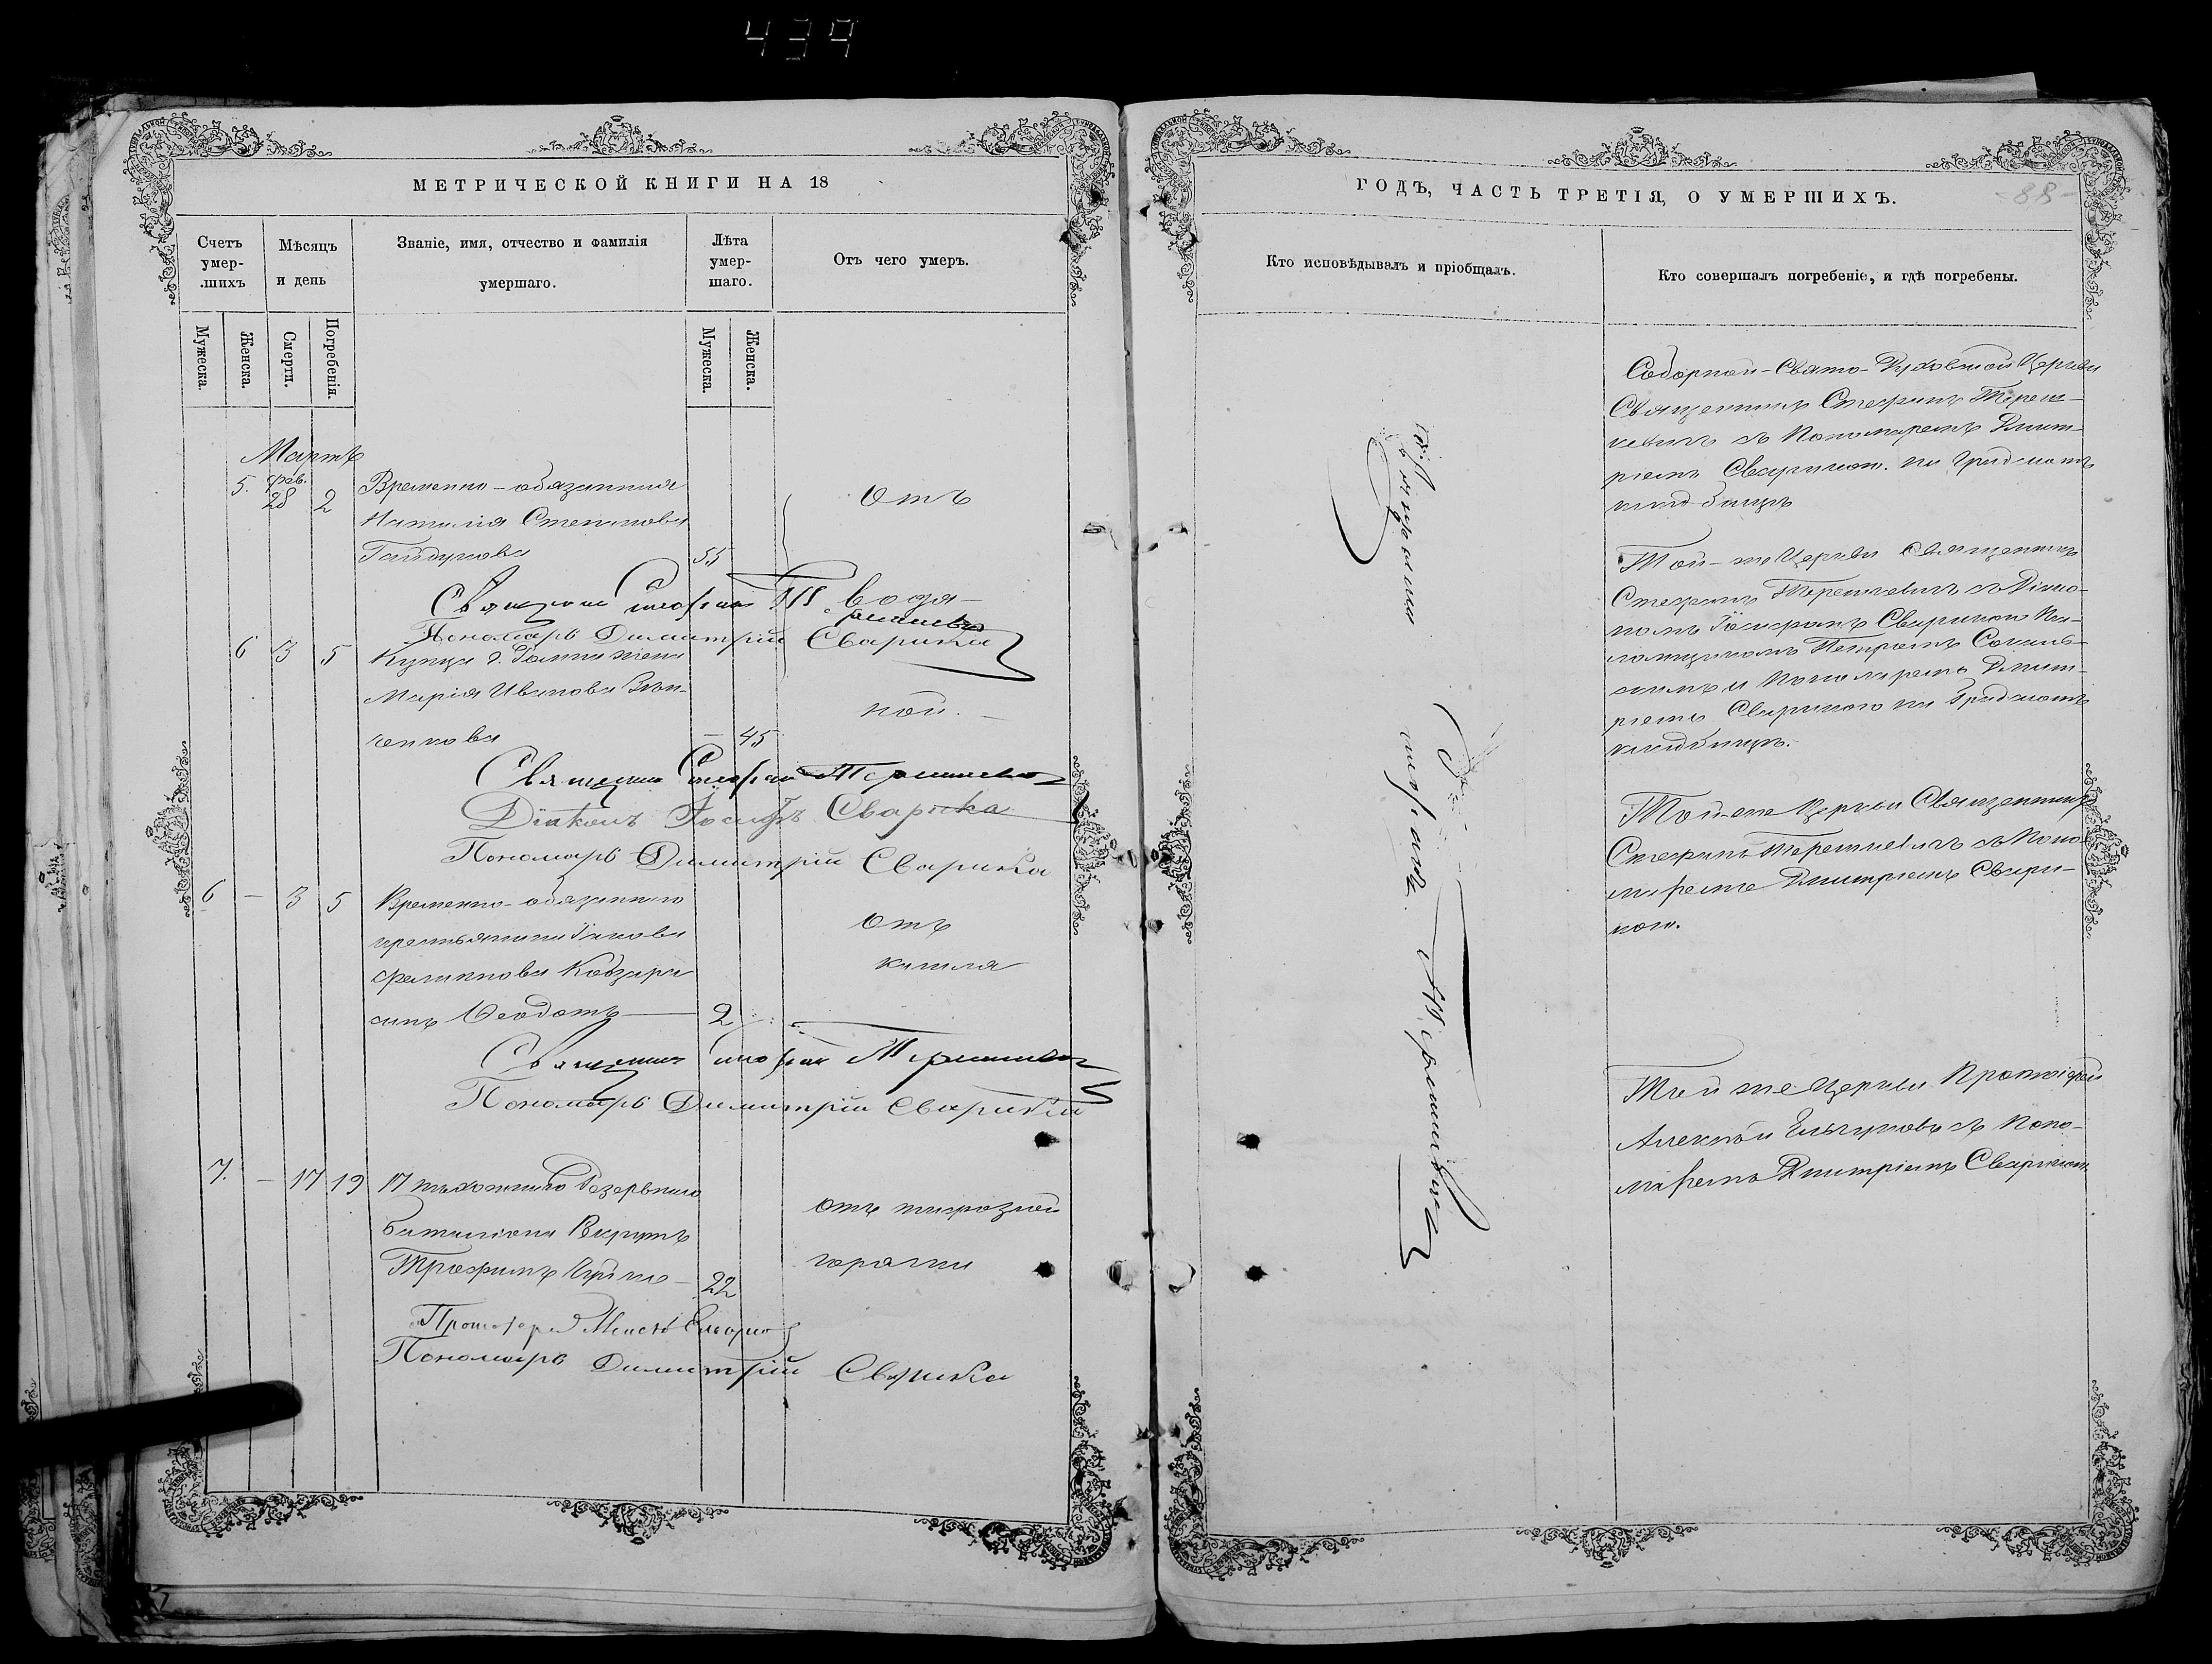 439
МЕТРИЧЕСКОЙ КНИГИ НА 18
Счетъ умер-.шихъ
Мѣсяцъ и день
Званіе, имя, отчество и фамилія умершаго.
Лѣта умер-шаго.
Отъ чего умеръ.
Мужеска.
Женска.
Смерти.
Погребенія.
Мужеска.
Женска.
Мартъ
5. фев. 28 2 Временно-обязанная
Наталія Степанова
55
Отъ
Священникъ Стефанъ
водя-
Пономарь Димитрій Сварика
6 3 5 Купца
жена
Марія Иванова
ченкова – 45
ной.
Священникъ Стефанъ Терешкевичъ
Діаконъ Іосифъ Сварика
Пономарь Димитрій Сварика
6 – 3 5 Временно-обязаннаго
крестьянина Іакова
Филиппова Кобзаря
сынъ Ѳеодотъ 2
Отъ
кашля
Священникъ Стефанъ Терешкевичъ
Пономарь Димитрій Сварика
7. – 17 19 17 пѣхотнаго Резервнаго
баталіона Рекрутъ
Трофимъ
22
отъ тифозной
горячки
Протоіерей Алексѣй
Пономарь Димитрій Сварика
ГОДЪ, ЧАСТЬ ТРЕТІЯ, О УМЕРШИХЪ.
-88-
Кто исповѣдывалъ и пріобщалъ.
Кто совершалъ погребеніе, и гдѣ погребены.
Священникъ
Стефанъ Терешкевичъ
Соборной-Свято-Духовской Церкви
Священникъ Стефанъ Тереш-
кевичъ съ Пономаремъ Димит-
ріемъ Сварикою на градскомъ
кладбищѣ
Той-же Церкви Священникъ
Стефанъ Терешкевичъ съ Діако-
номъ Іосифомъ Сварикою Пса-
ломщикомъ Петромъ
и Пономаремъ Димит-
ріемъ Сварикою на Градскомъ
кладбищѣ.
Той-же Церкви Священникъ
Стефанъ Терешкевичъ съ Поно-
маремъ Димитріемъ Свари-
кою.
Той же Церкви Протоіерей
Алексѣй
съ Поно-
маремъ Димитріемъ Сварикою